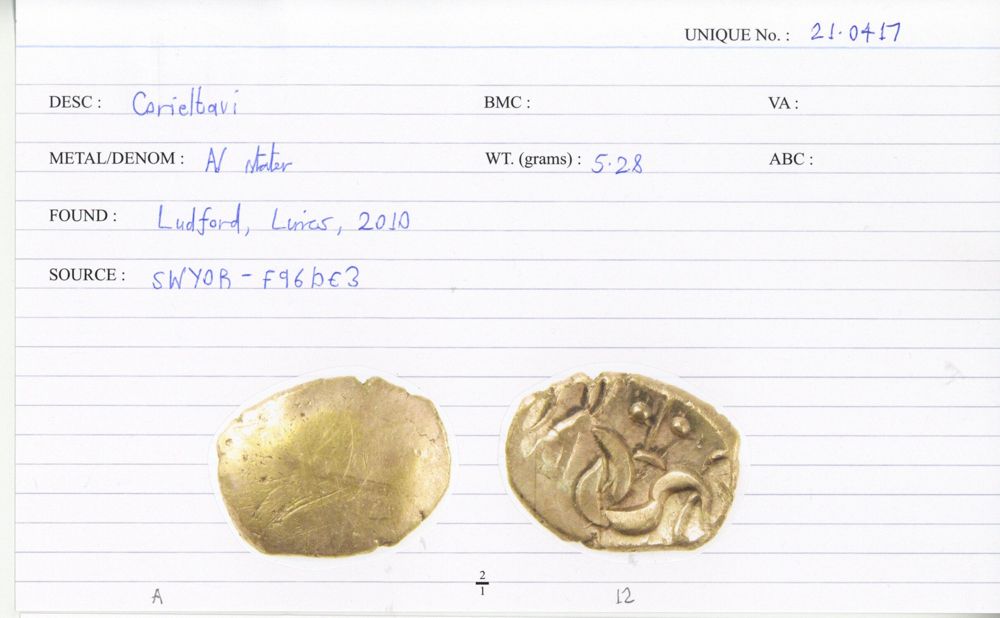 UNIQUE No. : 21.0417
DESC : Corieltavi BMC : VA :
METAL/DENOM : AV stater WT. (grams) : 5.28 ABC :
FOUND : Ludford, Lincs, 2010
SOURCE : SWYOR - F96DE3
2/1
A 12